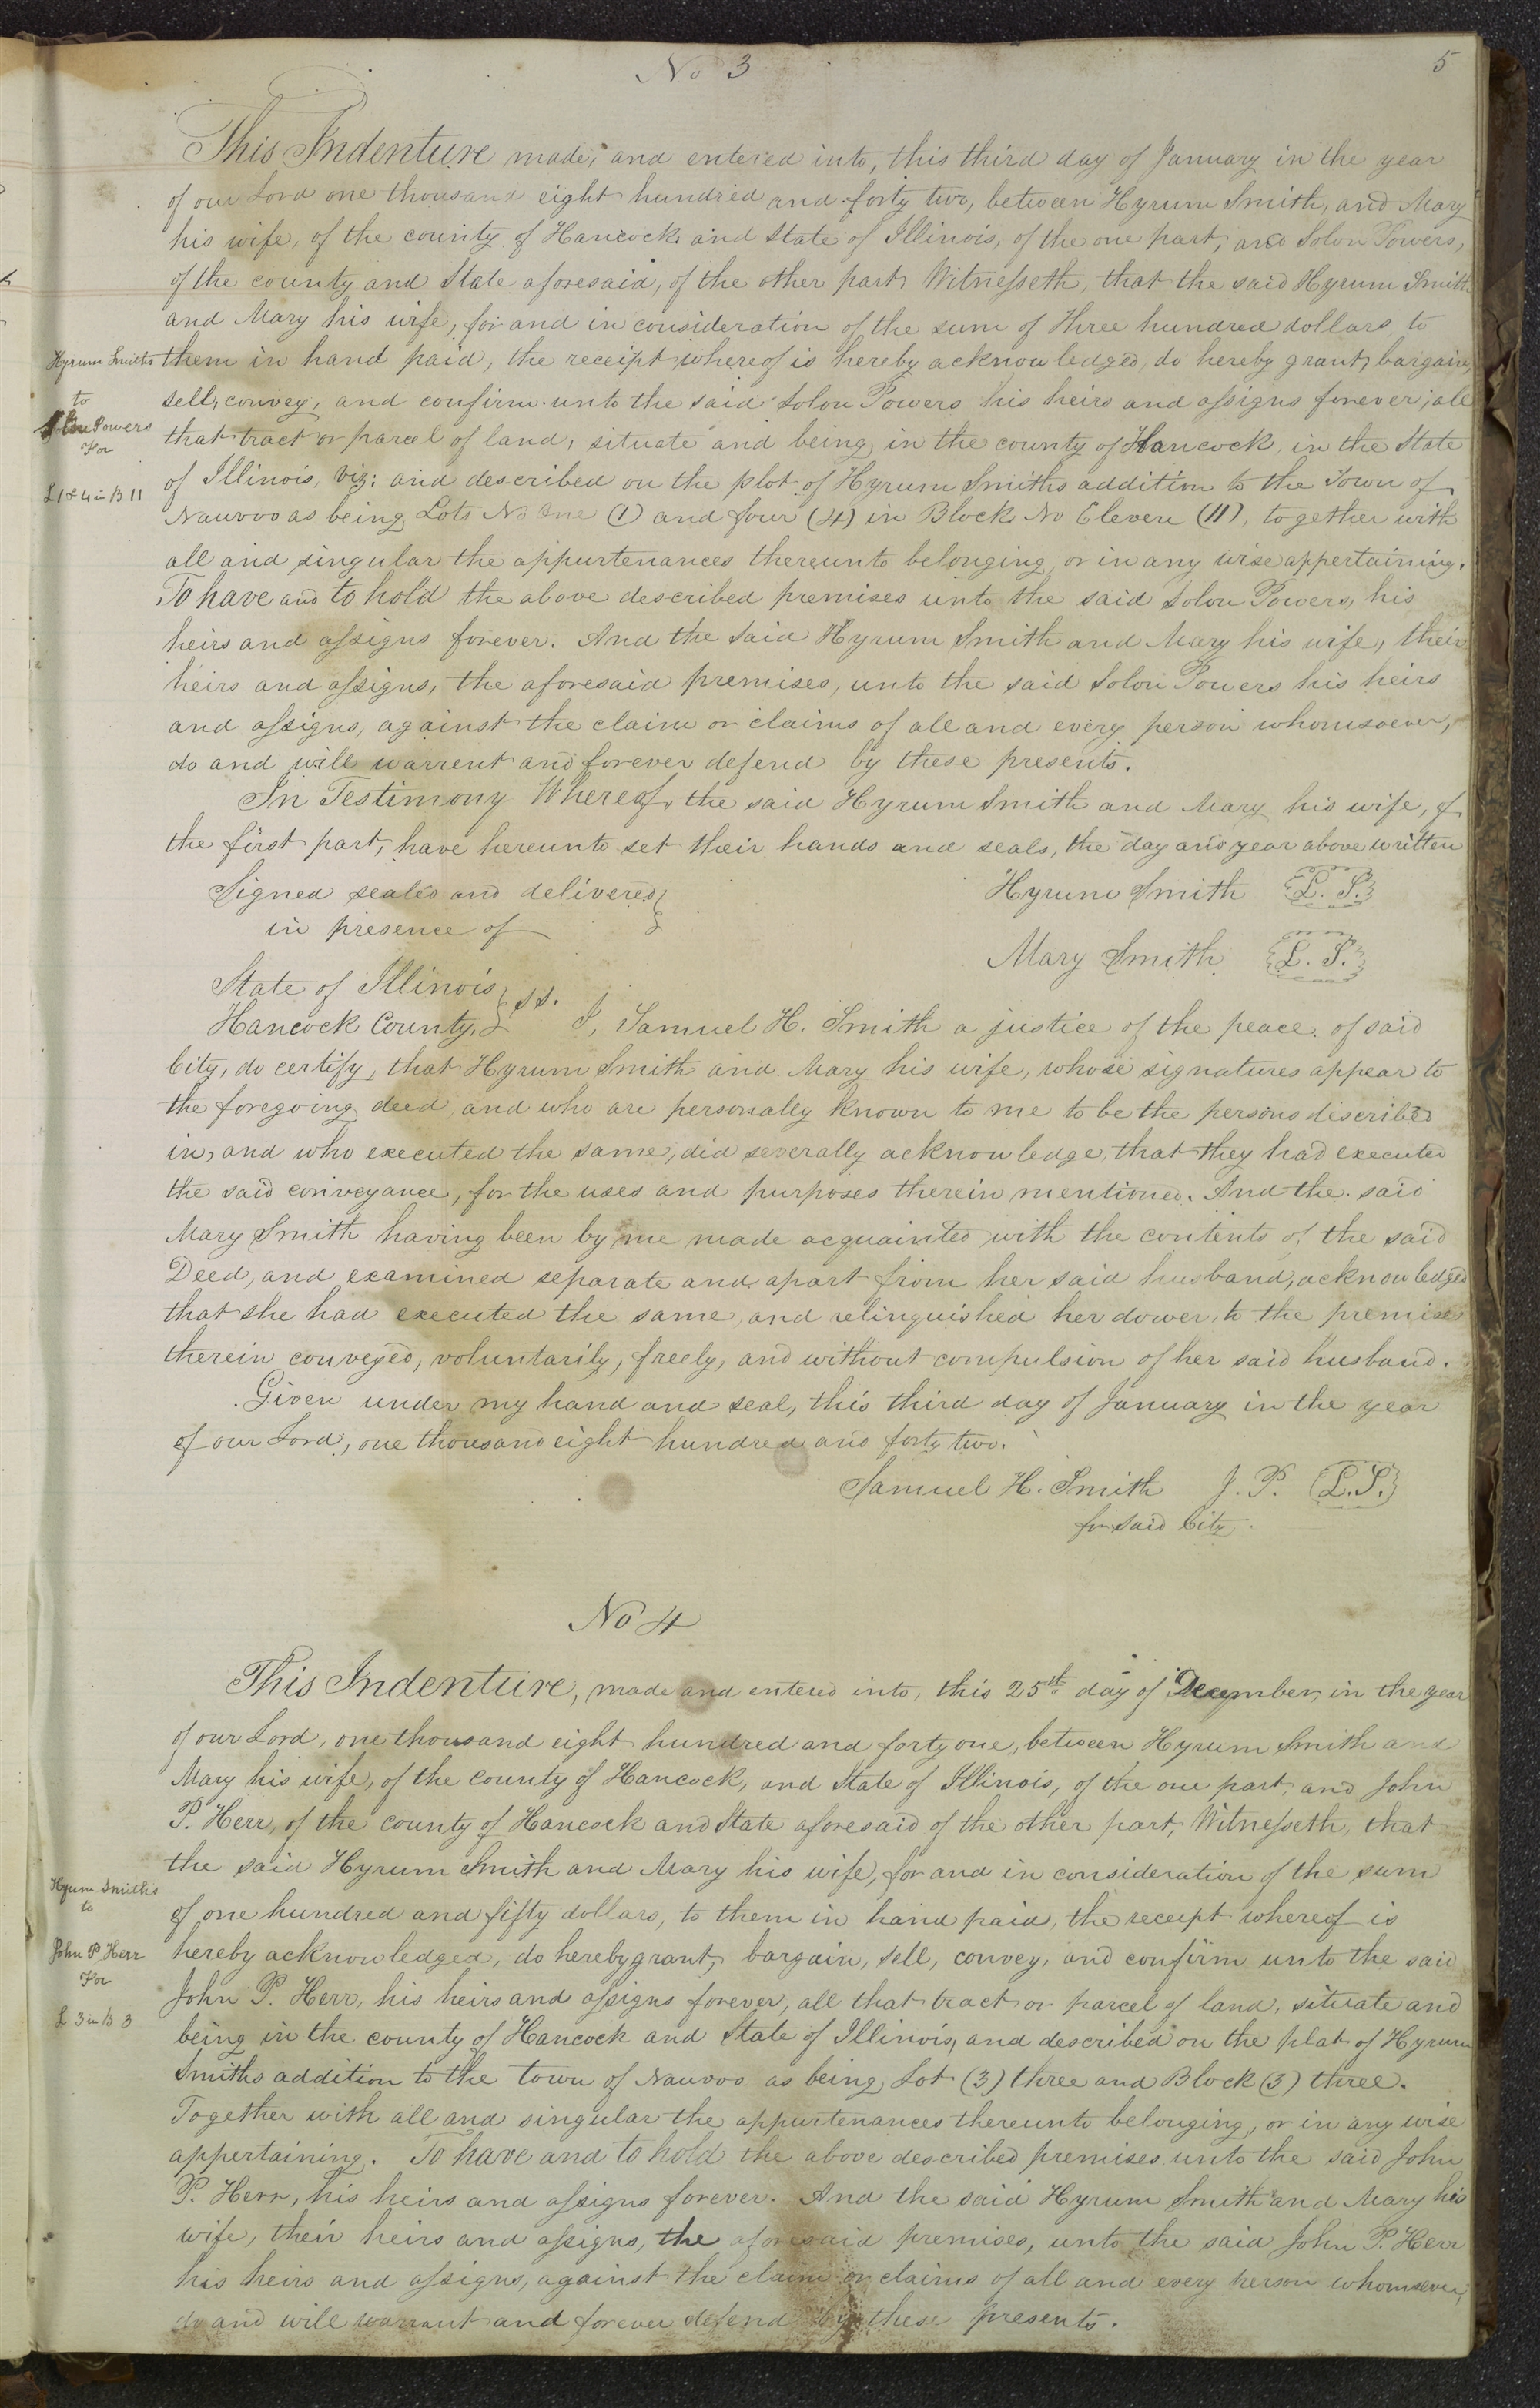 No 3
5
This Indenture made, and entered into, this third day of January in the year
of our Lord one thousand eight hundred and forty two, between Hyrum Smith, and Mary
his wife, of the county of Hancock and State of Illinois, of the one part, and Solon Powers,
of the county and State aforesaid, of the other part, Witnesseth, that the said Hyrum Smith
and Mary his wife, for and in consideration of the sum of Three hundred dollars to
Hyrum Smiths
to
Solon Powers
For
L 1 & 4 in B 11
them in hand paid, the receipt whereof is hereby acknowledged, do hereby grant, bargain,
sell, convey, and confirm unto the said Solon Powers his heirs and assigns forever, all
that tract or parcel of land, situate and being in the county of Hancock, in the State
of Illinois, viz: and described on the plot of Hyrum Smiths addition to the Town of
Nauvoo as being Lots No One (1) and four (4) in Block No Eleven (11), together with
all and singular the appurtenances thereunto belonging, or in any wise appertaining.
To have and to hold the above described premises unto the said Solon Powers, his
heirs and assigns forever. And the said Hyrum Smith and Mary his wife, their
heirs and assigns, the aforesaid premises, unto the said Solon Powers his heirs
and assigns, against the claim or claims of all and every person whomsoever,
do and will warrent and forever defend by these presents.
In Testimony Whereof, the said Hyrum Smith and Mary his wife, of
the first part, have hereunto set their hands and seals, the day and year above written
Signed sealed and delivered }
in presence of
Hyrum Smith L. S.
Mary Smith L. S.
State of Illinois } ss.
Hancock County, } I, Samuel H. Smith a justice of the peace of said
City, do certify, that Hyrum Smith and Mary his wife, whose signatures appear to
the foregoing deed and who are personally known to me to be the persons described
in, and who executed the same, did severally acknowledge, that they had executed
the said conveyance, for the uses and purposes therein mentioned. And the said
Mary Smith having been by me made acquainted with the contents of the said
Deed, and examined separate and apart from her said husband, acknowledged
that she had executed the same, and relinquished her dower, to the premises
therein conveyed, voluntarily, freely, and without compulsion of her said husband.
Given under my hand and seal, this third day of January in the year
of our Lord, one thousand eight hundred and forty two.
Samuel H. Smith J. P. L.S.
for said City.
No 4
This Indenture, made and entered into, this 25th day of December, in the year
of our Lord, one thousand eight hundred and forty one, between Hyrum Smith and
Mary his wife, of the county of Hancock, and State of Illinois, of the one part, and John
P. Herr, of the county of Hancock and State aforesaid of the other part, Witnesseth, that
the said Hyrum Smith and Mary his wife, for and in consideration of the sum
Hyrum Smiths
to
John P Herr
For
L 3 in B 3
of one hundred and fifty dollars, to them in hand paid, the receipt whereof is
hereby acknowledged, do hereby grant, bargain, sell, convey, and confirm unto the said
John P. Herr, his heirs and assigns forever, all that tract or parcel of land, situate and
being in the county of Hancock and State of Illinois, and described on the plat of Hyrum
Smiths addition to the town of Nauvoo as being, Lot (3) three and Block (3) three.
Together with all and singular the appurtenances thereunto belonging, or in any wise
appertaining. To have and to hold the above described premises unto the said John
P. Herr, his heirs and assigns forever. And the said Hyrum Smith and Mary his
wife, their heirs and assigns, the aforesaid premises, unto the said John P. Herr
his heirs and assigns, against the claim or claims of all and every person whomsoever,
do and will warrant and forever defend by these presents.